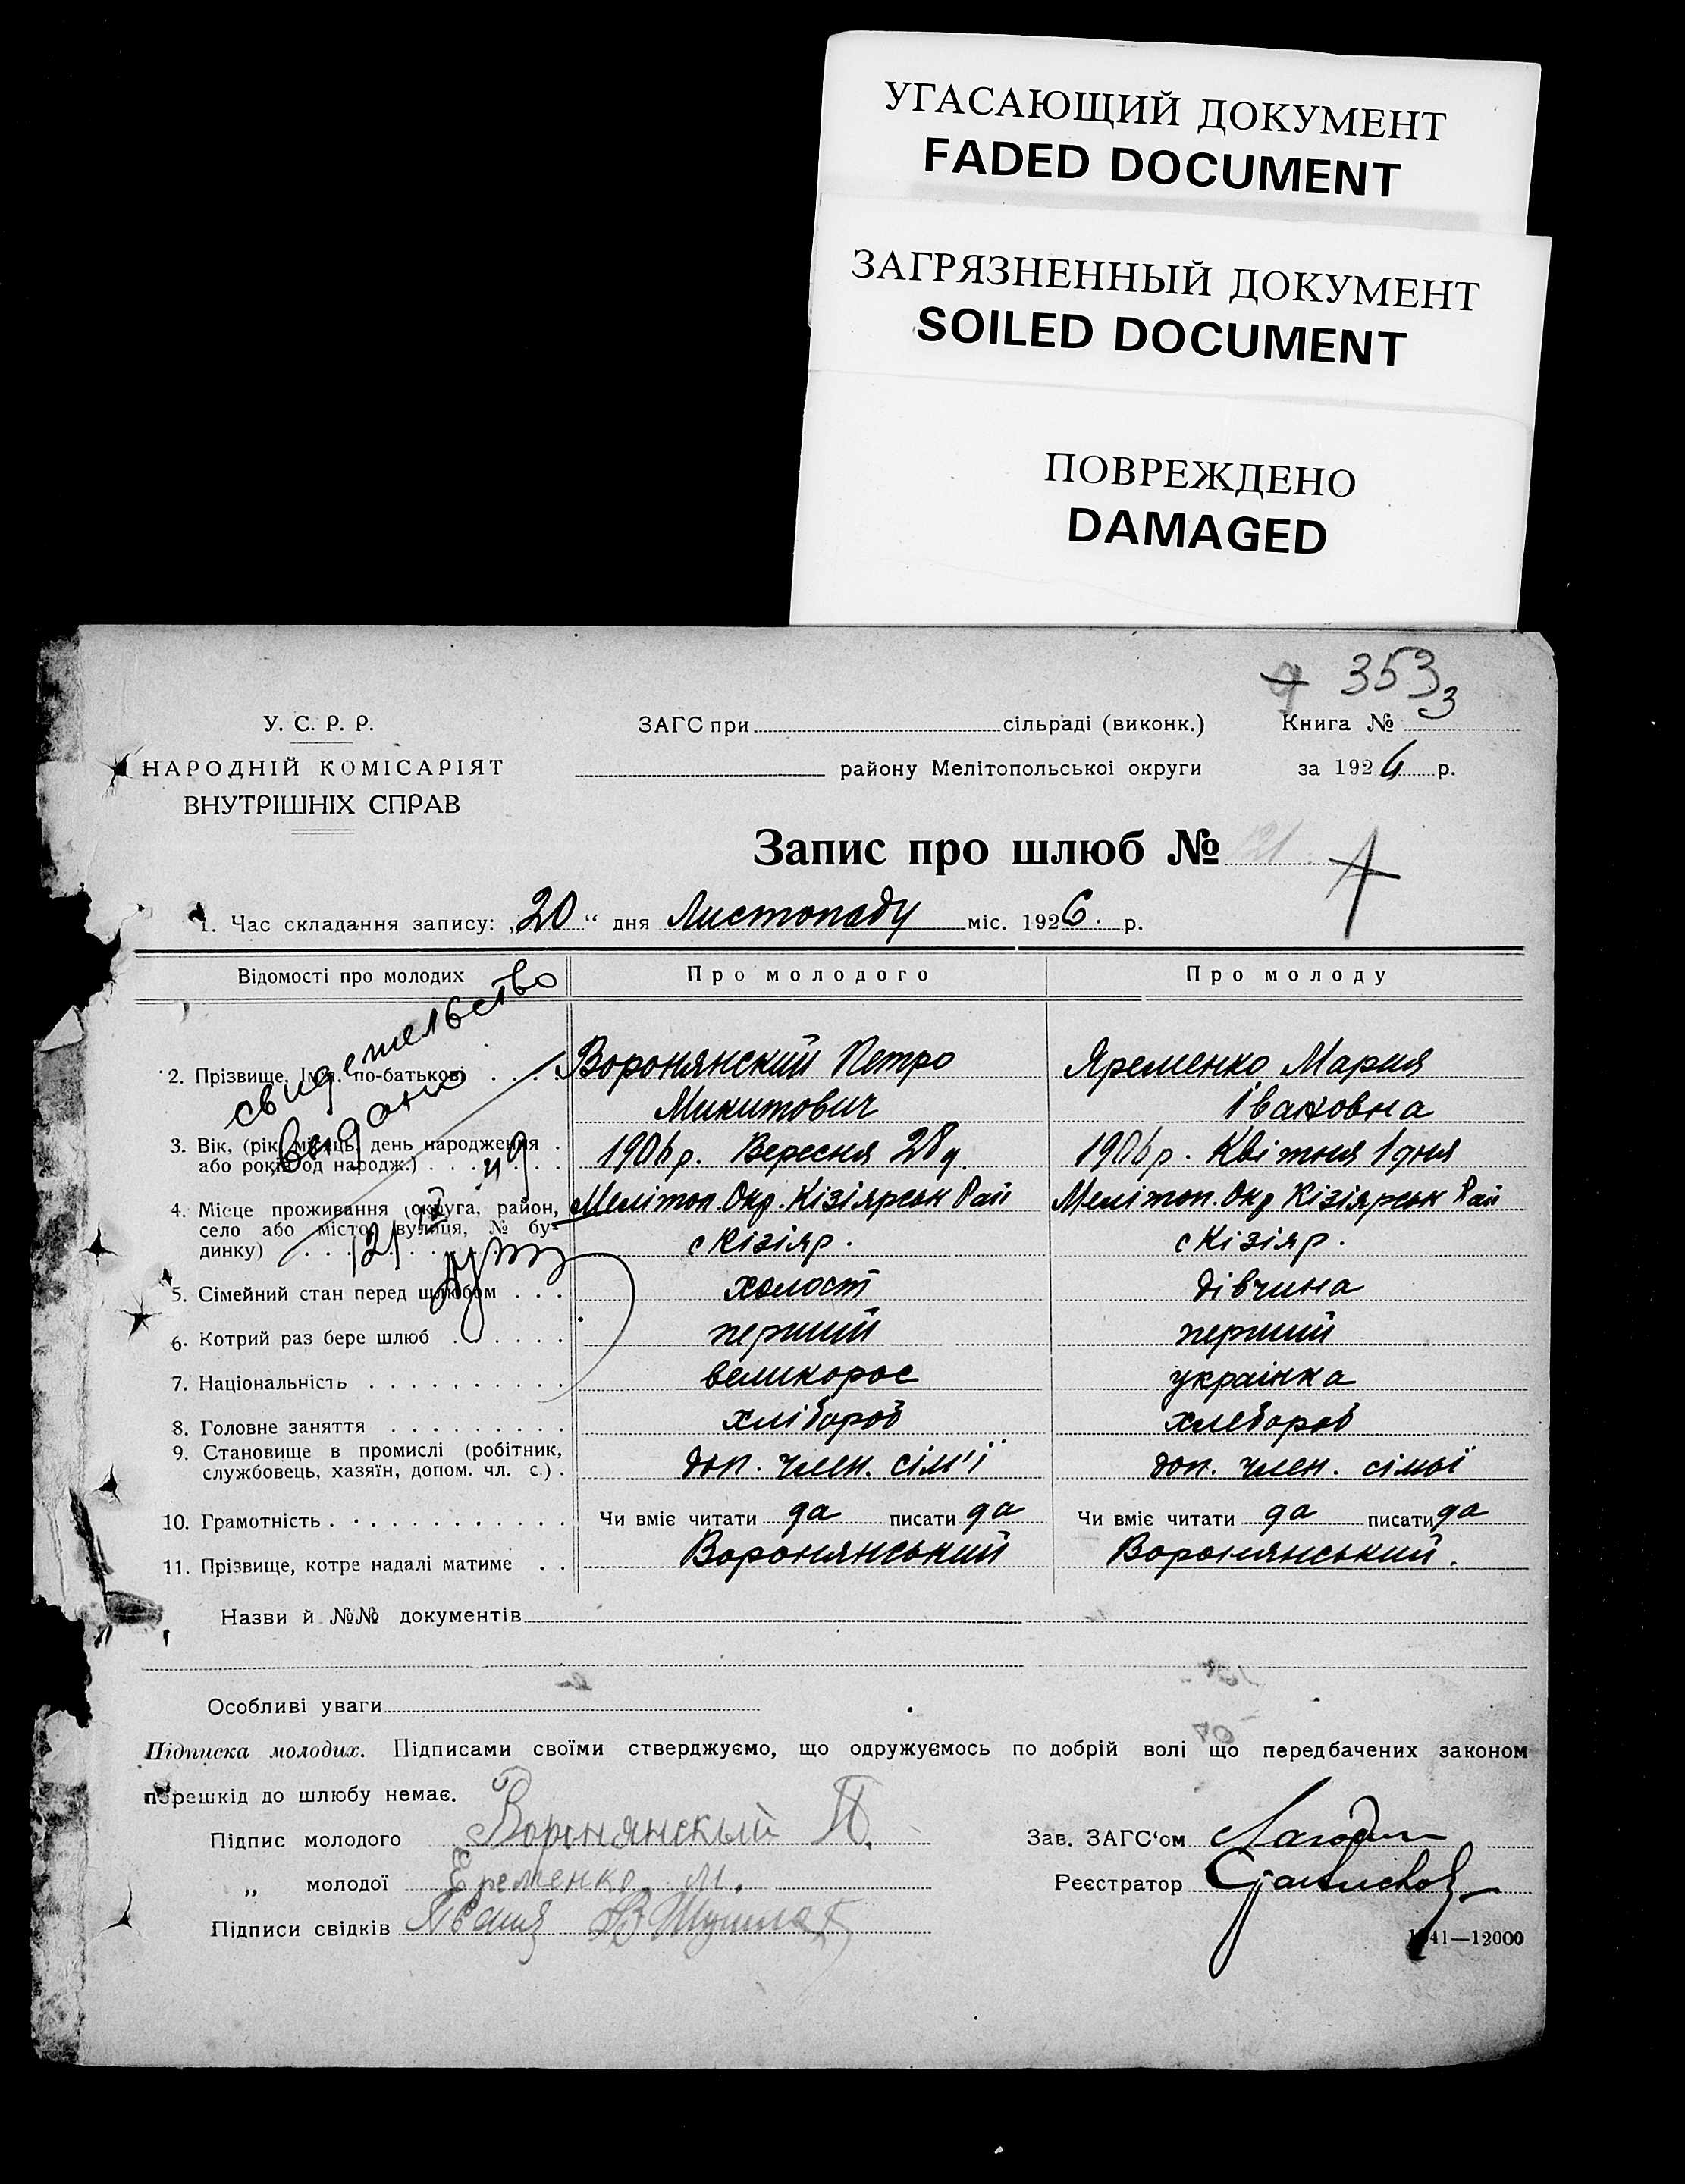 УГАСАЮЩИЙ ДОКУМЕНТ
FADED DOCUMENT
ЗАГРЯЗНЕННЫЙ ДОКУМЕНТ
SOILED DOCUMENT
ПОВРЕЖДЕНО
DAMAGED
353
У. С. Р. Р.
ЗАГС при сільраді (виконк.)
Книга № 3
НАРОДНІЙ КОМІСАРІЯТ
району Мелітопольської округи
за 1926 р.
ВНУТРІШНІХ СПРАВ
Запис про шлюб № 21
1. Час складання запису: „20“ дня Листопаду міс. 1926. р.
Відомості про молодих Про молодого Про молоду
свидетельство
видано
2. Прізвище, Ім'я, по-батькові . . . . Воронянский Петро Яременко Мария
Микитович Івановна
3. Вік, (рік, місяць, день народження . 1906 р. Вересня 28 д. 1906 р. Квітня 1 дня
або років од народж.) . . . . . .
4. Місце проживання (округа, район, Мелітоп. Окр. Кізіярськ Рай Мелітоп. Окр Кізіярськ Рай
село або місто, вулиця, № бу-
динку) . . . . . . с Кізіяр. с Кізіяр.
5. Сімейний стан перед шлюбом . . . холост дівчина
6. Котрий раз бере шлюб . . . . . . перший перший
7. Національність . . . . . . . . . . великорос українка
8. Головне заняття . . . . . . . . . хлібороб хлебороб
9. Становище в промислі (робітник,
службовець, хазяїн, допом. чл. с.) . доп. член. сім'ї доп. член. сімьї
10. Грамотність . . . . . . . . . . . . Чи вміє читати да писати да Чи вміє читати да писати да
11. Прізвище, котре надалі матиме . . Воронянський Воронянський.
Назви й №№ документів
Особливі уваги
Підписка молодих. Підписами своїми стверджуємо, що одружуємось по добрій волі що передбачених законом
перешкід до шлюбу немає.
Підпис молодого Воронянскый П. Зав. ЗАГС‘ом
„ молодої Еременко м. Реєстратор
Підписи свідків
41—12000